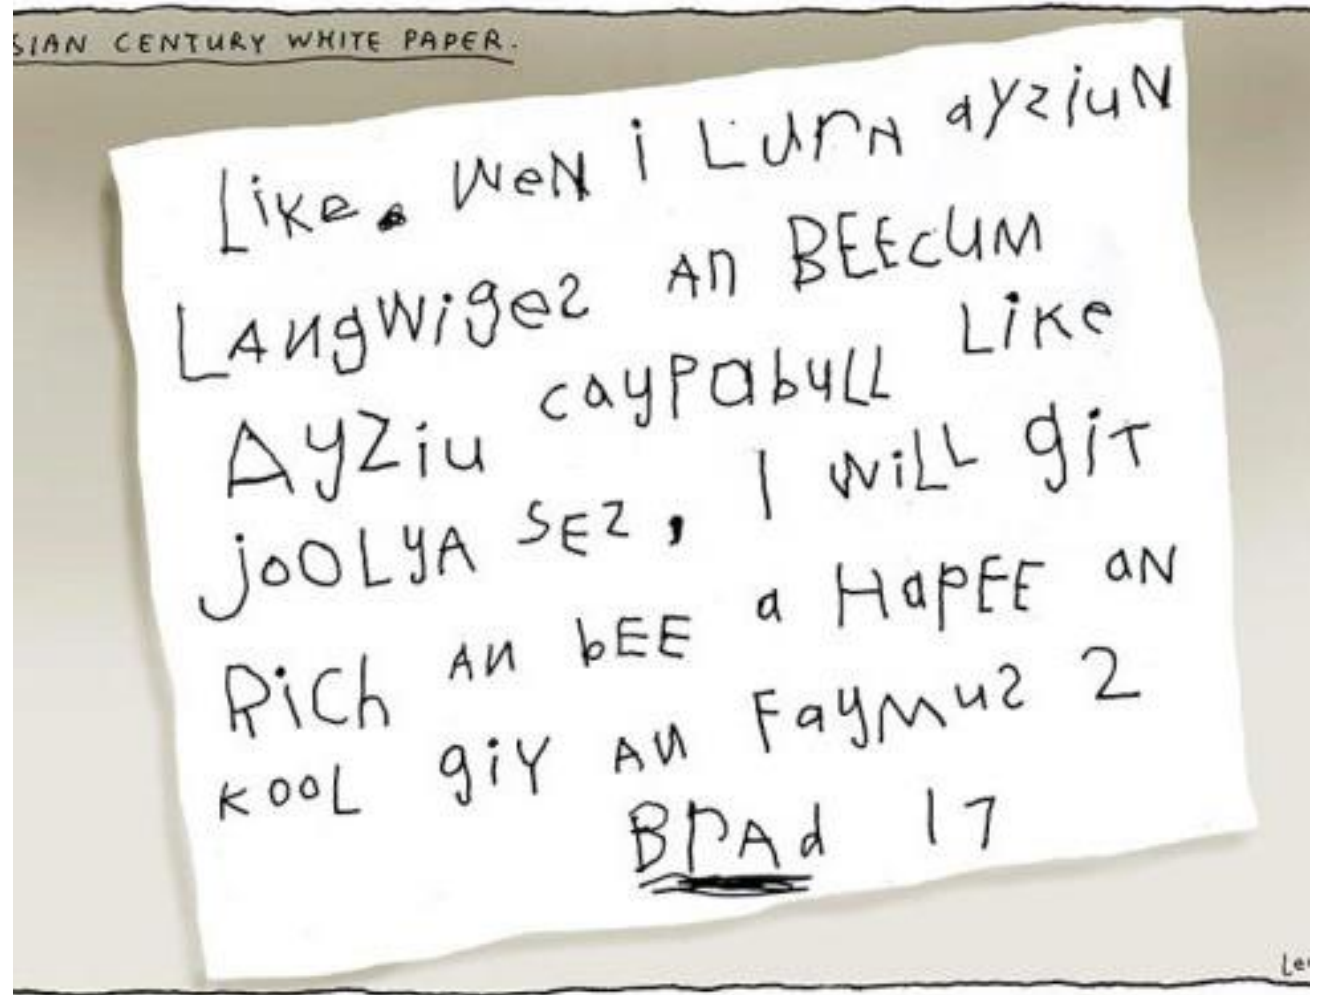 SIAN CENTURY WHITE PAPER.
Like. WeN i LurN ayziuN
LANgWigez AN BEEcUM
AyZiu caypabull Like
joOLYA SEZ, I WiLL giT
RiCh AN bEE a HapEE aN
KooL giY AN Faymuz 2
BrAd 17